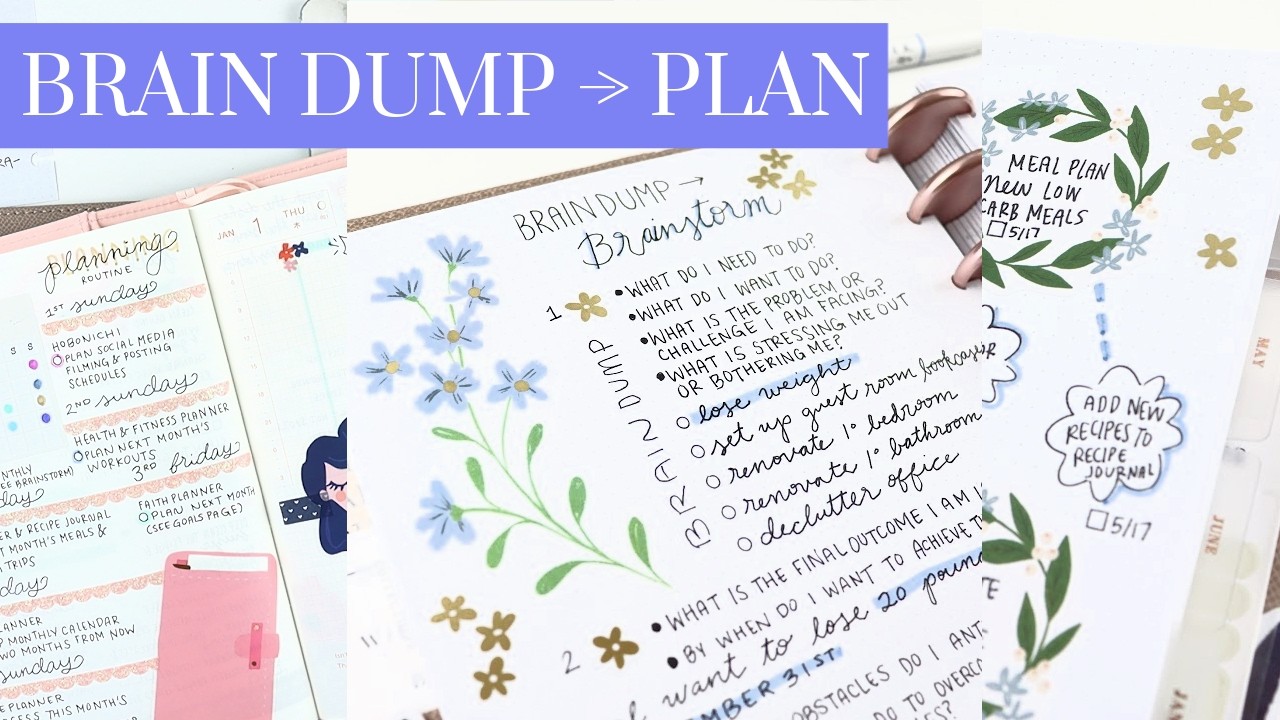 BRAIN DUMP → PLAN
RA-
planning
ROUTINE
1ST sunday
HOBONICHI
PLAN SOCIAL MEDIA
FILMING & POSTING
SCHEDULES
2ND sunday
HEALTH & FITNESS PLANNER
PLAN NEXT MONTH'S
WORKOUTS
3RD friday
FAITH PLANNER
PLAN NEXT MONTH
(SEE GOALS PAGE)
S S
NTHLY
E BRAINSTORM)
day
R & RECIPE JOURNAL
T MONTH'S MEALS &
TRIPS
day
ANNER
P MONTHLY CALENDAR
TWO MONTHS FROM NOW
Sunday
E PLANNER
CESS THIS MONTH'S
JAN 1 THU
BRAIN DUMP →
Brainstorm
1
• WHAT DO I NEED TO DO?
• WHAT DO I WANT TO DO?
• WHAT IS THE PROBLEM OR
CHALLENGE I AM FACING?
• WHAT IS STRESSING ME OUT
OR BOTHERING ME?
BRAIN DUMP
○ lose weight
○ set up guest room bookcases
○ renovate 1° bedroom
○ renovate 1° bathroom
○ declutter office
2
• WHAT IS THE FINAL OUTCOME I AM I
• BY WHEN DO I WANT TO ACHIEVE T
I want to lose 20 pound
MBER 31ST
OBSTACLES DO I ANT
DO TO OVERCO
11
MEAL PLAN
NEW LOW
CARB MEALS
□ 5/17
R
ADD NEW
RECIPES TO
RECIPE
JOURNAL
□ 5/17
TE
MAY
JUNE